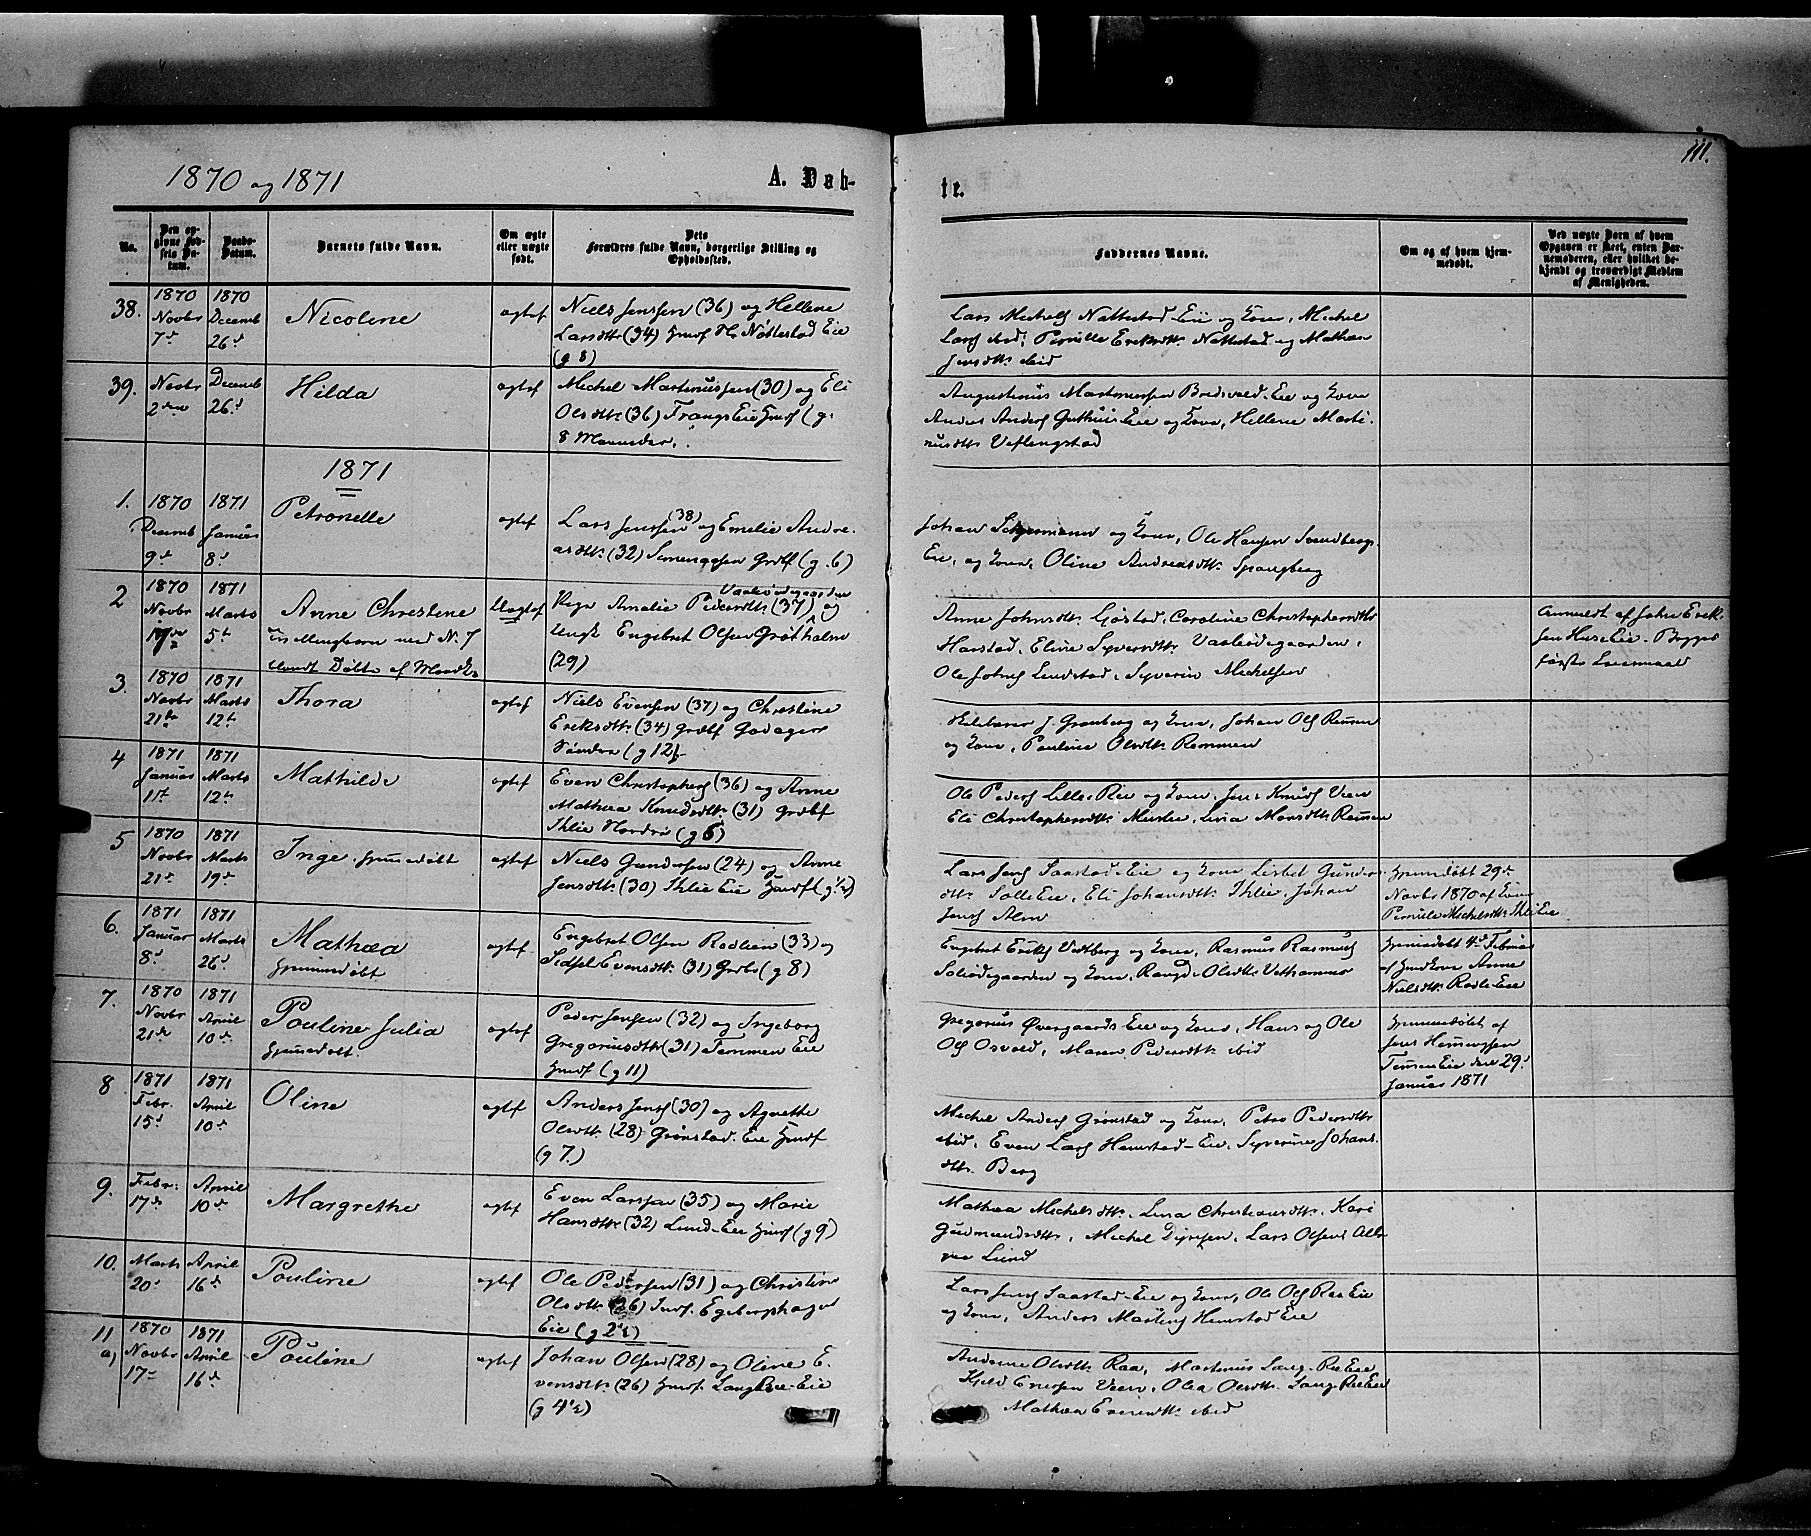 1870 og 1871
A. Døb-
te.
111.
No.
Den op-
givne Fød-
sels Da-
tum.
Daabs-
Datum.
Barnets fulde Navn.
Om ægte
eller uægte
født.
Dets
Forældres fulde Navn, borgerlige Stilling og
Opholdssted.
Faddernes Navne.
Om og af hvem hjem-
medøbt.
Ved uægte Børn af hvem
Opgaven er skeet, enten Bar-
nemoderen, eller hvilket be-
kjendt og troværdigt Medlem
af Menigheden.
38.
1870
Novbr
7de
1870
Decemb
26d
Nicoline
ægtef
Niels Jenssen (36) og Hellene
Larsdtr (34) Huusf Nøttestad Eie
(g 8)
Lars Michels Nøttestad-Eie og Kone, Michel
Lars ibid, Pernille Eriksdtr Nøttestad og Mathea
Jensdtr ibid
39.
Novbr
2den
Decemb
26d
Hilda
ægtef
Michel Martinussen (30) og Eli
Olsdtr (36) Trangs Eie Huusf (g.
8 Maaneder.
Augustinus Martinussen Bredsvold-Eie og Kone
Anders Anders Guthuus-Eie og Kone, Hellene Marti-
nusdtr Veflengstad
1871
1.
1870
Decemb
9d
1871
Januar
8d
Petronelle
ægtef
Lars Jenssen (38) og Emelie Andre-
asdtr (32) Grdbf (g. 6)
Johan og Kone, Ole Hansen Svendberg-
Eie, og Kone, Oline Andreasdtr Spangberg
2
1870
Novbr
17de
1871
Marts
5te
Anne Christine
Tvillingbarn med N. 7
Døbte af Mandk.
Uægtef
Pige Amalie Pedersdtr (37) og
Ungk Engebret Olsen Grøtholm
(29)
Anne Johnsdtr Gjøstad, Caroline Christophersdtr
Harstad, Eline Syversdtr Vaaleødegaarden,
Ole Johns Lundstad, Syverin Michelsen
Anmeldt af John Erik-
sen Huse Eie - Begges
første Leiermaal
3.
1870
Novbr
21de
1871
Marts
12te
Thora
ægtef
Niels Evensen (37) og Christine
Eriksdtr (34) Grdbf Godager
Søndre (g 12)
J. Grønberg og Kone, Johan Ols Remmen
og Kone, Pauline Olsdtr Remmen
4
1871
Januar
11te
1871
Marts
12te
Mathilde
ægtef
Even Christophers (36) og Anne
Mathea Knudsdtr (31) Grdbf
Ihlie Nordre (g 5)
Ole Peders Lille-Rie og Kone, Jens Knuds Veen
Eli Christophersdtr Muslie, Lina Monsdtr Remmen
5
1870
Novbr
21d
1871
Marts
19de
Inge. Hjemmedøbt
ægtef
Niels Gundersen (24) og Anne
Jensdtr (30) Ihlie Eie Huusf (g 1/2)
Lars Jens Saastad-Eie og Kone Lisbet Gunder-
dtr Solle Eie, Eli Johansdtr Ihlie, Johan
Jens Alm
Hjemmedøbt 29de
Novbr 1870 af Kone
Pernille Michelsdtr Ihli Eie
6.
1871
Januar
8d
1871
Marts
26d
Mathæa
Hjemmedøbt
ægtef
Engebret Olsen Rodlien (33) og
Sidsel Evensdtr (31) Grdbf (g 8)
Engebret Eriks Vestberg og Kone, Rasmus Rasmus
Soliødegaarden og Kone, Rangd. Olsdtr Vethammer
Hjemmedøbt 4de Februar
af Huuskone Anne
Nielsdtr Rodlie Eie
7.
1870
Novbr
21de
1871
April
10de
Pouline Julia
Hjemmedøbt.
ægtef
Peder Jensen (32) og Ingeborg
Gregoriusdtr (31) Temmen Eie
Huusf (g 11)
Gregorius Øvergaards Eie og Kone, Hans og Ole
Ols Osvold, Maren Pedersdtr ibid
Hjemmedøbt af
Jens Hemmingsen
Temmen Eie den 29.
Januar 1871
8
1871
Febr.
15d
1871
April
10de
Oline
ægtef
Anders Jens (30) og Agnethe
Olsdtr (28) Grønstad-Eie Huusf
(g 7.)
Michel Anders Grønstad og Kone, Petra Pedersdtr
ibid, Even Lars Hemstad-Eie, Syverine Johans-
dtr Berg
9.
Febr.
17de
April
10de
Margrethe
ægtef
Even Larssen (35) og Marie
Hansdtr (32) Lund-Eie Huusf (g 9)
Mathea Michelsdtr, Lina Christiansdtr, Kari
Gudmundsdtr, Michel, Lars Olsens Alle
paa Lund
10.
Marts
20d
April
16de
Pouline
ægtef
Ole Pedersen (31) og Christine
Olsdtr (26) Inds. Egeberghagen
Eie (g 2 1/2)
Lars Jens Saastad-Eie og Kone, Ole Ols Raa Eie
og Kone, Anders Martins Hemstad Eie
11
a)
1870
Novbr
17d
1871
April
16de
Pouline
ægtef
Johan Olsen (28) og Oline E-
vensdtr (26) Huusf. Lang Ree-Eie
(g 4 1/2)
Anderine Olsdtr Raa, Martinus Lang-Ree Eie
Kjeld Veen, Olea Olsdtr Lang-Ree Eie
Mathea Evensdtr ibid